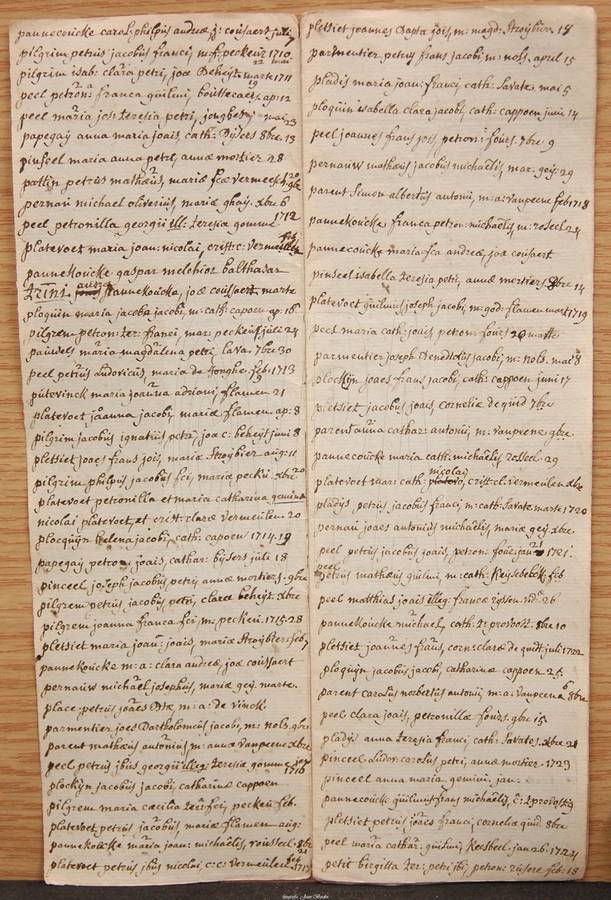 pannecoucke carol: philpus andreæ j: coussaert juli
7
pilgrim petrus jacobus franci, m.f. peckeur 1710
22 mai
pilgrim isab: clara petri, joæ Beheyt: marte 1711
19
peel petron: franca guilmi, ap: 12
peel maria jos: teresia petri, jonghers
mai 23
papegaij anna maria joais, cath: Bijsers 8bre. 13
pinseel maria anna petri, annæ mortier. 28
pattijn petrus mathæus, mariæ fcæ vermeesch
pernau michael oliverius, mariæ ghaij. xbre 6
peel petronilla georgii ill: teresia gomme 1712
platevoet maria joan: nicolai, crist: c: vermeulle
feb
pannekoucke gaspar melchior balthasar
andreæ pannekoucke, joæ coussaert marte
ploquin maria jacoba jacobi, m: cath: capoen ap: 16
pilgrem petron: ter: franci, mar: peckeu juli 24
pauwels maria magdalena petri, Lava. 7bre 30
peel petrus Ludovicus, maria de Jonghe. feb: 1713
9
putevinck maria joanna adriani flamen 21
platevoet joanna jacobi, mariæ flamen. ap: 8
pilgrim jacobus ignatius petri joæ c: beheyt juni 8
pletsiet joaes frans jois, mariæ Stroijbier aug: 11
pilgrim philpus jacobus fci, maria peckeu. xbre
20
platevoet petronilla et maria catharina gemine
nicolai platevoet et crist: claræ vermeulen. 20
ploquijn helena jacobi, cath: capoen 1714. 19
papegaij petron: joais, cathar: bijsers juli 18
pinceel joseph jacobus petri annæ mortier. 9bre
pilgrem petrus jacobus petri, claræ beheijt. xbre
pilgrim joanna franca fci m: peckeu. 1715. 28
pletsiet maria joan: joais, mariæ Stroijbier feb 7
pannekoucke m: a: clara andreæ, joæ coussaert
pernauw michael josephus, mariæ geij. marte.
place petrus joaes Btæ, m: a: de vinck
parmentier joes Bartholomeus jacobi, m: nols. 9bre
parent mathæus antonius m: annæ Vanpeene xbre
peel petrus jbus georgii illeg: teresia gomme
1716
plockijn jacobus jacobi, catharinæ cappoen
pilgrem maria cæcilia ter: fci, peckeu feb.
platevoet petrus jacobus, mariæ flamen aug:
pannekoucke maria joan: michaelis, rousseel. 8bre
21
platevoet petrus jbus nicolai c: c: Vermeulen
pletsiet joannes Bapta jois, m: magd: Stroijbier. 18
parmentier petrus frans jacobi, m: nols. april 15
pladis maria joan: franci, cath: Savate. mai 5
ploquin isabella clara jacobi, cath: cappoen juni 14
peel joannes frans jois, petron: fours. 7bre 9
pernauw mathæus jacobus michaelis, mar: geij. 29
parent simon albertus antonii, m: a: Vanpeene feb 1718
pannekoucke franca petron: michaelis, m: roseel 24
pannecoucke maria fca andreæ, joæ coussaert
pinseel isabella teresia petri, annæ mortier 8bre 14
platevoet guilmus joseph jacobi, m: god: flamen mart 1719
peel maria cath: joais, petron: fours 20 martte
parmentier joseph Benedictus jacobi, m: nols. mai 8
plockijn joaes frans jacobi, cath: cappoen juni 17
pletsiet jacobus joais, cornelia de quid 7bre
parent anna cathar: antonii, m: Vanpeene 9bre.
pannecoucke maria cath: michaelis, rosseel. 29
nicolay
platevoet mar: cath: crist: cl: vermeulen xbre
pladys petrus jacobus franci, m: cath: Savate marte 1720
pernau joaes antonius michaelis, mariæ geij. xbre
peel petrus jacobus joais, petron: fous jan 1721.
peel
petrus mathæus guilmi, m: cath: Reysebeke feb
peel matthias joais illeg: francæ 26
pannekoucke michael, cath: l: provoost. 8bre 10
pletsiet joannes frans, corn: claræ de quidt juli 1722
ploquijn jacobus jacobi, catharinæ cappoen 25.
parent carolus norbertus antonii, m: a: Vanpeene 8bre
6
peel clara joais, petronillæ fours. 9bre 15
pladijs anna teresia franci, cath: Savates. xbre 21
pinceel Ludov: carolus petri, annæ mortier. 1723
pinceel anna maria gemini. jan:
pannecoucke guilmus frans michaelis, c: l: provost
pletsiet petrus joaes franci, cornelia quid. 8bre
peel maria cathar: guilmi, Keesbeel. jan 26. 1724
petit birgitta ter: petri jbi, petron: feb: 18